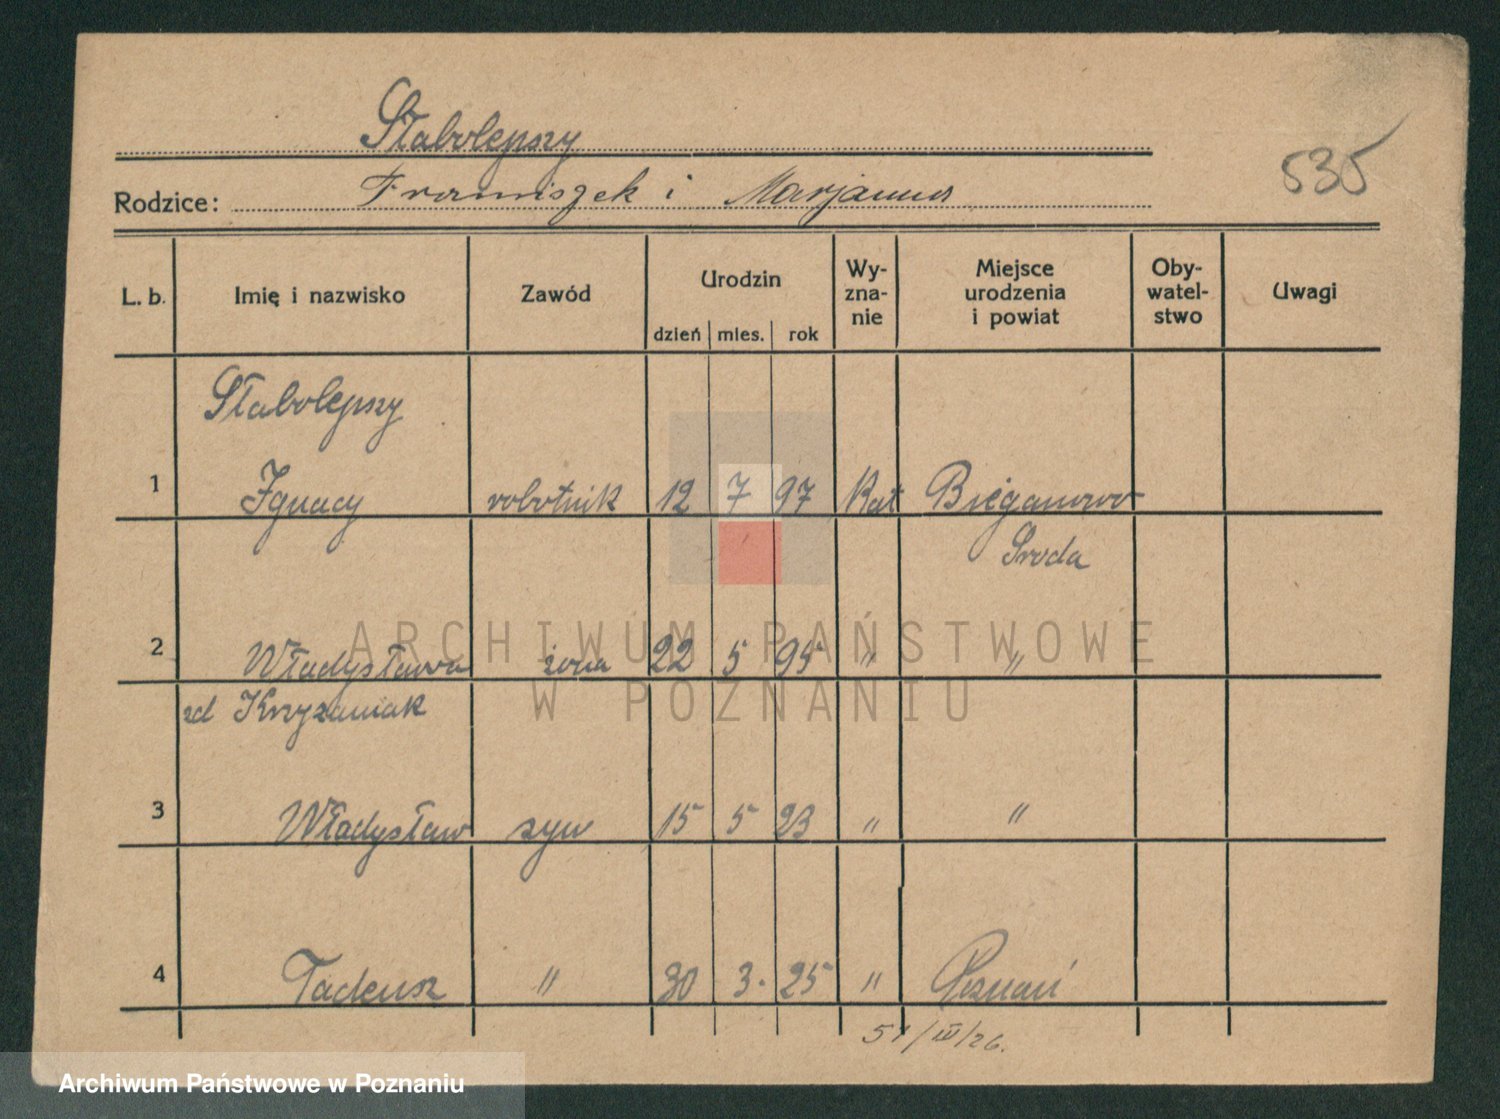 Słabolepszy
535
Rodzice: Franciszek i Marjanna
L. b. Imię i nazwisko Zawód Urodzin dzień mies. rok Wy-zna-nie Miejsce urodzenia i powiat Oby-watel-stwo Uwagi
Słabolepszy
1 Ignacy robotnik 12 7 97 Kat Bieganowo
Sroda
2 Władysława żona 22 5 95 " "
zd Krzyzaniak
3 Władysław syn 15 5 23 " "
4 Tadeusz " 30 3. 25 " Poznań
51/III/26.
ARCHIWUM PAŃSTWOWE
W POZNANIU
Archiwum Państwowe w Poznaniu